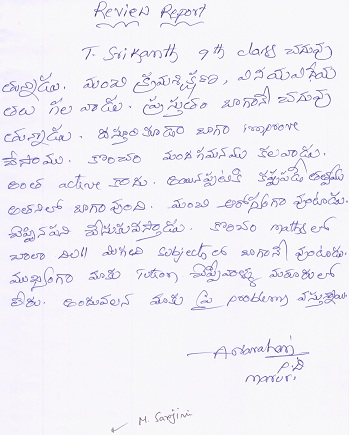 Review Report
T. Srikanth 9th class చదువు
తున్నాడు. మంచి క్రమశిక్షణ, వినయవిధేయ
తలు గల వాడు. ప్రస్తుతం బాగానే చదువు
తున్నాడు. కూడా బాగా improve
చేసాము. కొంచం మందగమనము కలవాడు.
అంత active కాదు. అయినప్పటికి కష్టపడే తత్వము
అతనిలో బాగా వుంది. మంచి ఆరోగ్యంగా వుంటాడు.
చెప్పిన పని చేసుకువస్తాడు. కొంచం maths లో
చాలా dull మిగతా subjects లో బాగానే వుంటాడు.
ముఖ్యంగా మాకు Tution చెప్పేవాళ్ళు మా ఊరులో
లేరు. అందువలన మాకు ఈ problems వస్తున్నాయి.
P.D
M. Sarojini